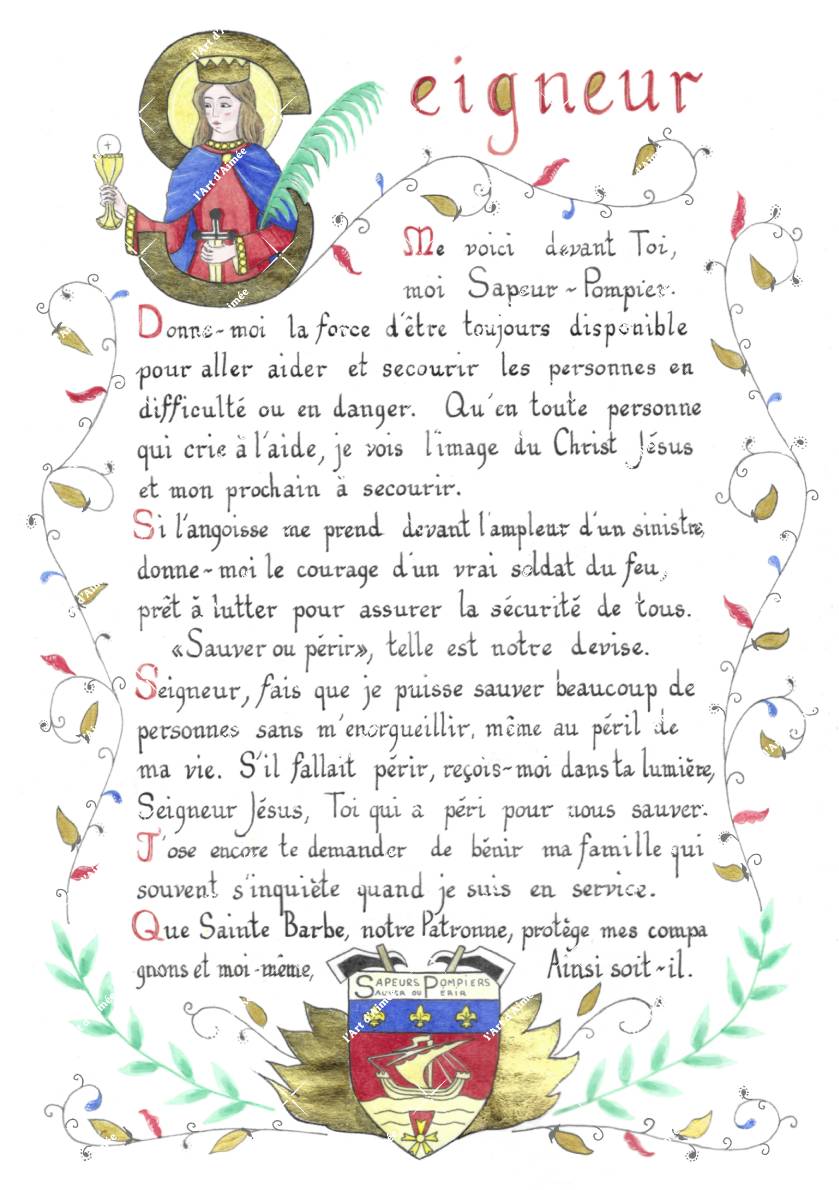 Seigneur
Me voici devant Toi,
moi Sapeur-Pompier.
Donne-moi la force d'être toujours disponible
pour aller aider et secourir les personnes en
difficulté ou en danger. Qu'en toute personne
qui crie à l'aide, je vois l'image du Christ Jésus
et mon prochain à secourir.
Si l'angoisse me prend devant l'ampleur d'un sinistre,
donne-moi le courage d'un vrai soldat du feu,
prêt à lutter pour assurer la sécurité de tous.
«Sauver ou périr», telle est notre devise.
Seigneur, fais que je puisse sauver beaucoup de
personnes sans m'enorgueillir, même au péril de
ma vie. S'il fallait périr, reçois-moi dans ta lumière,
Seigneur Jésus, Toi qui a péri pour nous sauver.
J'ose encore te demander de bénir ma famille qui
souvent s'inquiète quand je suis en service.
Que Sainte Barbe, notre Patronne, protège mes compa
gnons et moi-même, Ainsi soit-il.
SAPEURS POMPIERS
SAUVER OU PÉRIR
l'Art d'Aimée
l'Art d'Aimée
l'Art d'Aimée